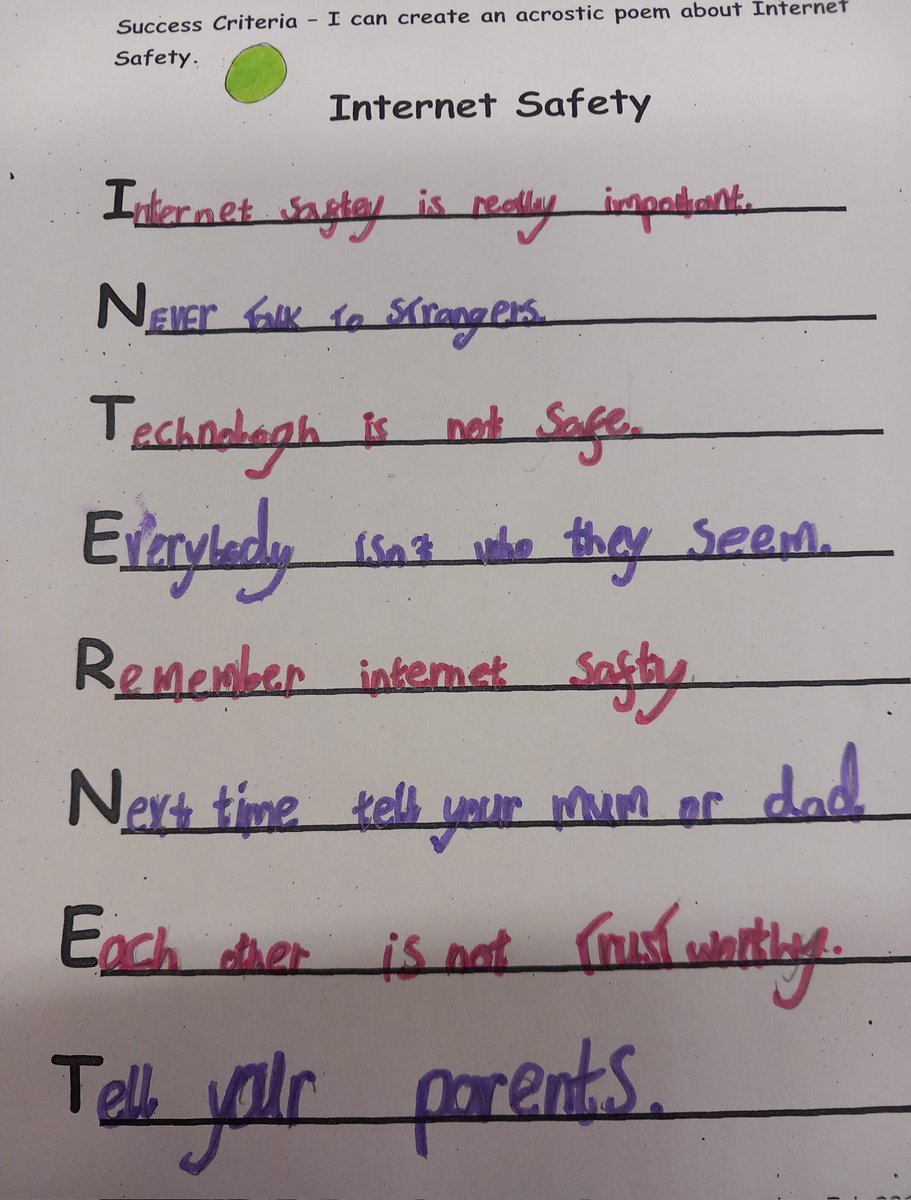 Success Criteria – I can create an acrostic poem about Internet
Safety.
Internet Safety
Internet saftey is really important.
NEVER talk to strangers.
Technologh is not safe.
Everybody isn't who they seem.
Remember internet safty
Next time tell your mum or dad
Each other is not Trust worthy.
Tell your parents.